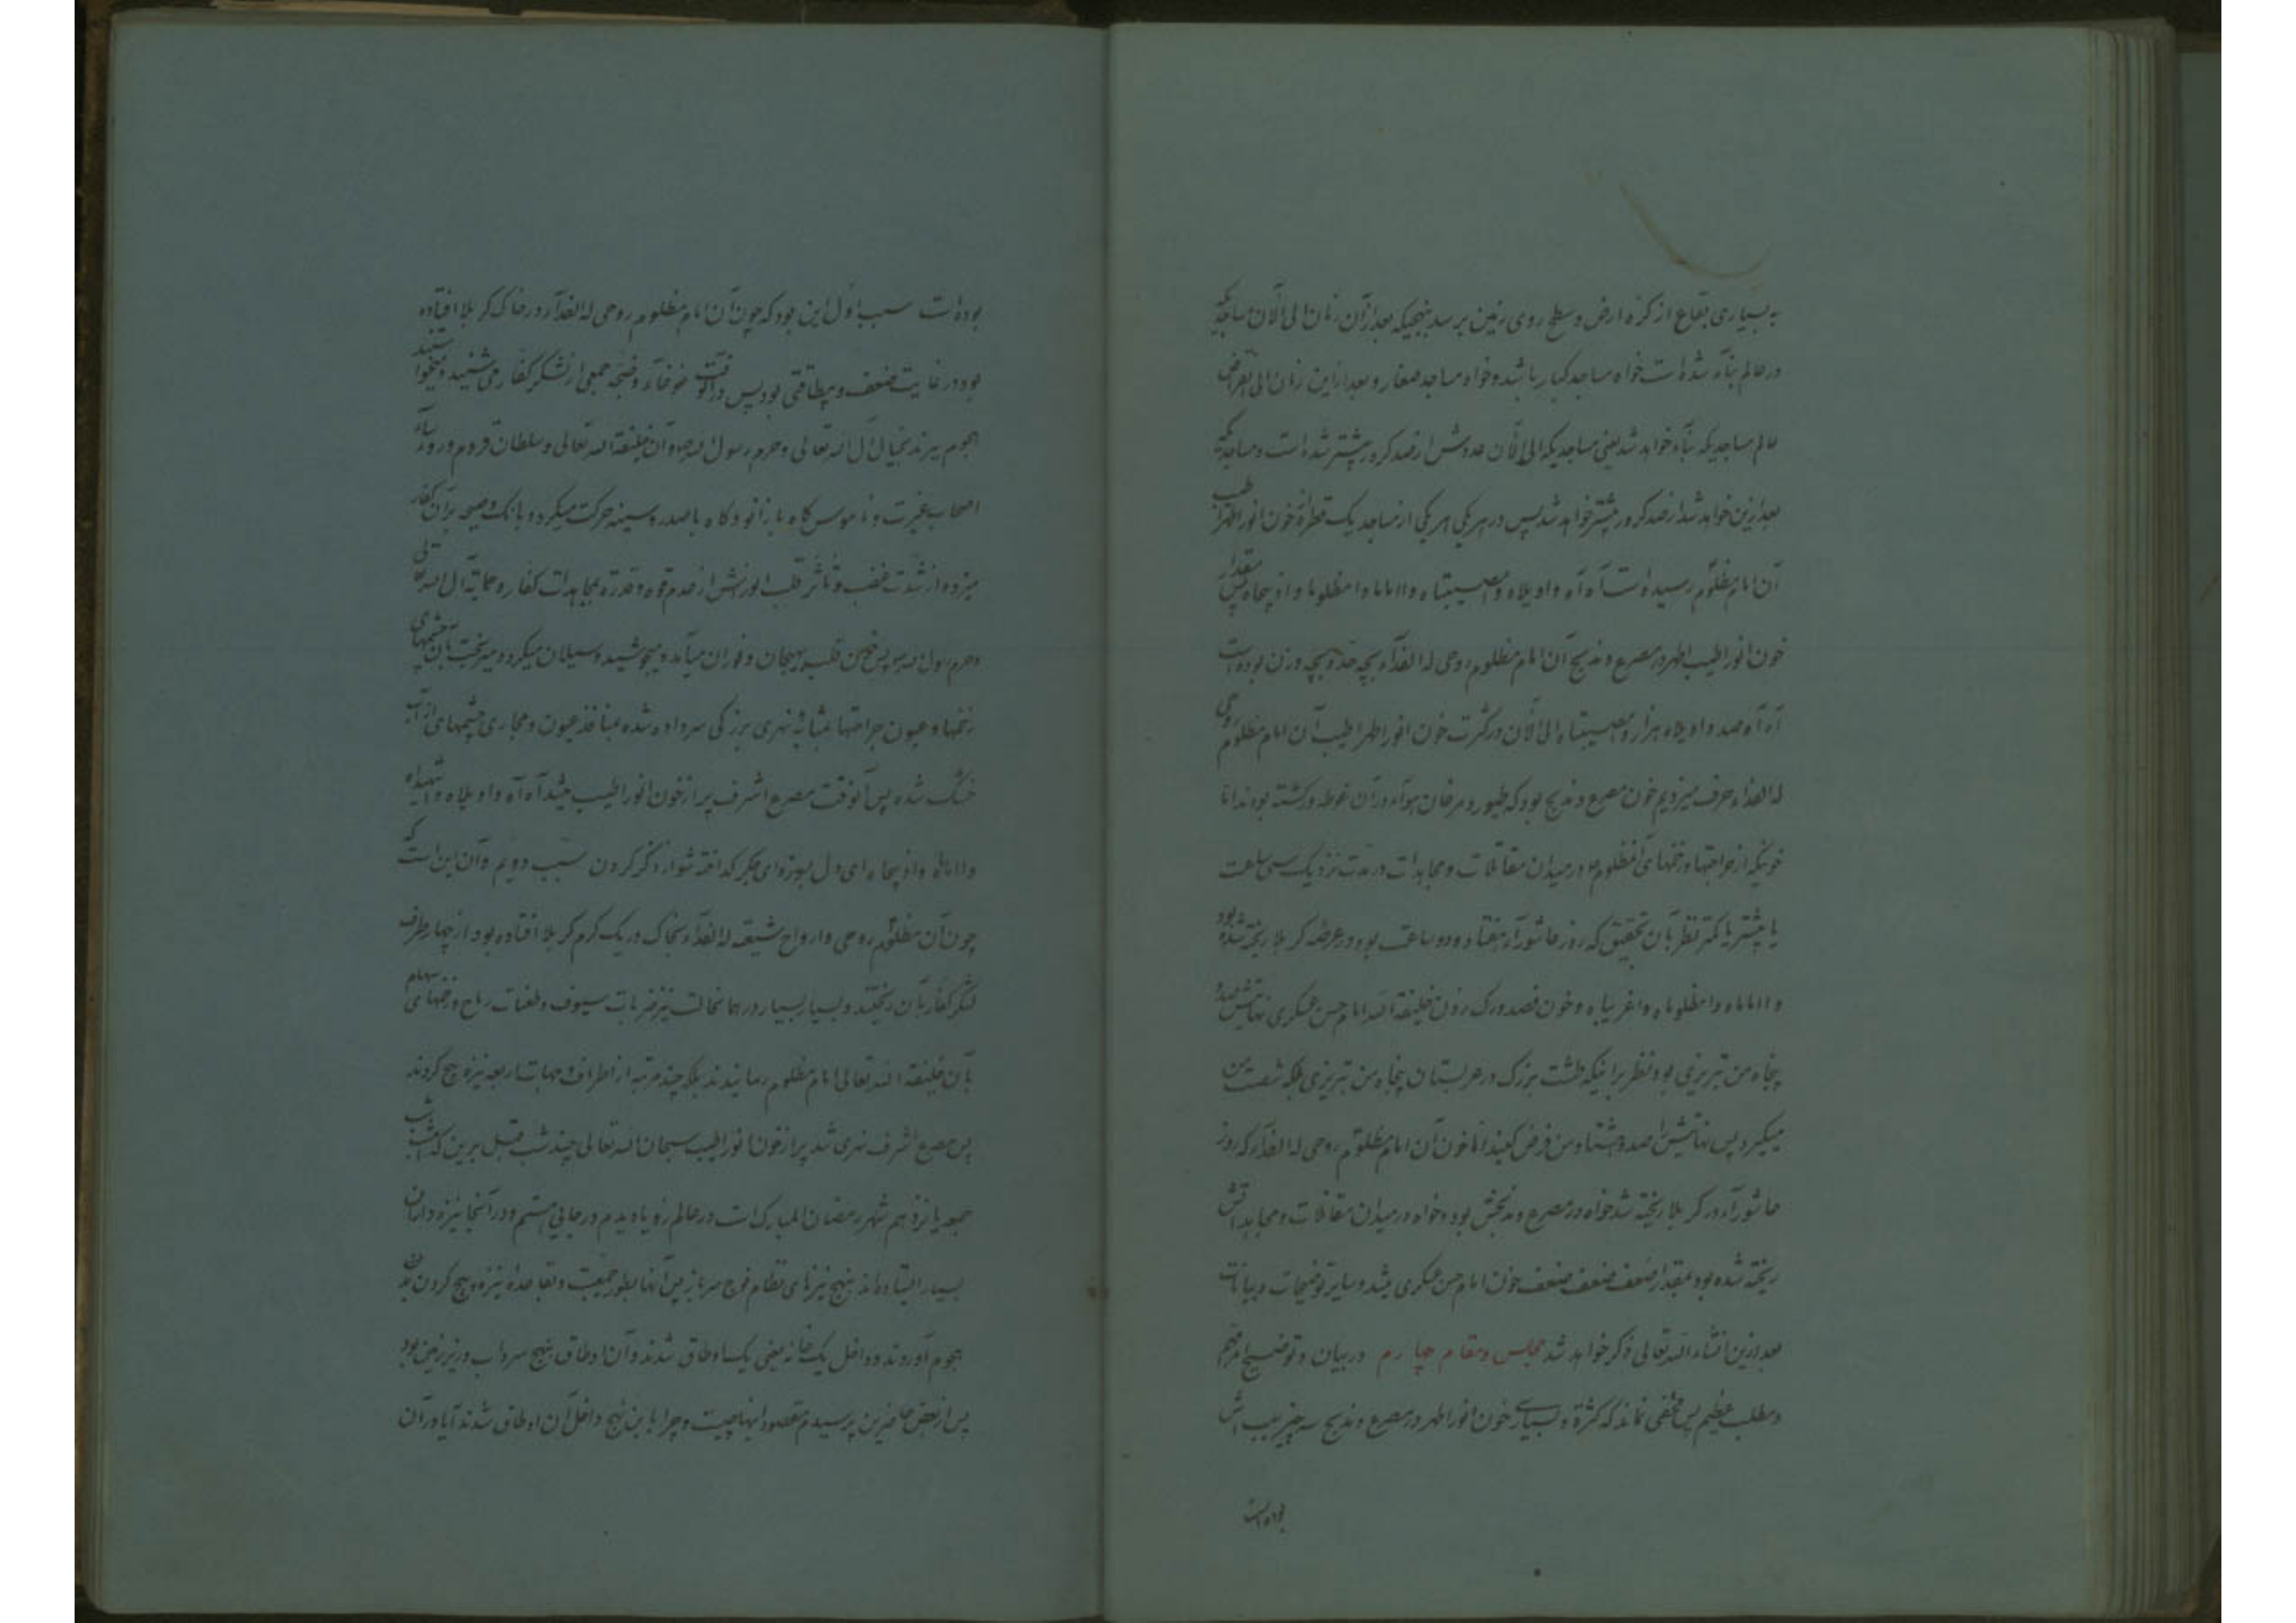 به بسیاری بقاع از کره ارض و سطح روی زمین برسد بنهجیکه بعد از آن زمان الی الآن مساجدیکه
در عالم بناء شده است خواه مساجد کبار باشد و خواه مساجد صغار و بعد از این زمان الی انقراض
عالم مساجدیکه بناء خواهد شد یعنی مساجدیکه الی الآن عددش از صد کرور بیشتر شده است و مساجدیکه
بعد ازین خواهد شد از صد کرور بیشتر خواهد شد پس در هر یکی هر یکی از مساجد یک قطرۀ خون انور اطهر اطیب
آن امام مظلوم رسیده است آه آه واویلاه وامصیبتاه وااماماه وامظلوماه واذبیحاه پس مقدار
خون انور اطیب اطهر در مصرع و مذبح آن امام مظلوم روحی له الفدآء بچه حد و بچه وزن بوده است
آه آه صد واویلاه هزار وامصیبتاه الی الآن در کثرت خون انور اطهر اطیب آن امام مظلوم روحی
له الفداء حرف میزدیم خون مصرع و مذبح بود که طیور و مرغان هوآء در آن غوطه ور گشته بودند اما
خونیکه از جراحتها و زخمهای آنمظلوم در میدان مقاتلات و مجاهدات در مدت نزدیک سی ساعت
یا بیشتر یا کمتر نظر بآن تحقیق که روز عاشورآء هفتاد و دو ساعت بود در عرصه کربلا ریخته شده بود
وااماماه وامظلوماه واغریباه و خون فصد و رک زدن خلیفة الله امام حسن عسکری نهایتش صد و
پنجاه من تبریزی بود نظر براینکه طشت بزرگ در عربستان پنجاه من تبریزی بلکه شصت من
میگیرد پس نهایتش صد و هشتاد من فرض کنید اما خون آن امام مظلوم روحی له الفدآء که روز
عاشورآء در کربلا ریخته شد خواه در مصرع و مذبحش بود و خواه در میدان مقاتلات و مجاهداتش
ریخته شده بود بمقدار ضعف ضعف ضعف خون امام حسن عسکری میشد و سایر توضیحات و بیانات
بعد ازین انشاء الله تعالی ذکر خواهد شد مجلس و مقام چهارم در بیان و توضیح امر مهم
و مطلب عظیم پس مخفی نماند که کثرة و بسیاری خون انور اطهر در مصرع و مذبح سه چیز سبب اش
بوده است
بوده است سبب اول این بود که چون آن امام مظلوم روحی له الفدآء در خاک کربلا افتاده
بود در غایت ضعف و بیطاقتی بود پس در آنوقت غوغاء و ضجه جمعی از لشکر کفار می شنید و میخواستند
هجوم ببرند بخیال آل الله تعالی و حرم رسول الله ص و آن خلیفة الله تعالی و سلطان
اصحاب غیرت و ناموس گاه با زانو و گاه با صدر و سینه حرکت میکرد و بانگ و صیحه بر آن کفار
میزد و از شدت غضب و تأثر قلب انورش از عدم قوه و قدرة بمجاهدات کفار و حمایة آل الله تعالی
و حرم رسول الله ص پس خون قلب بهیجان و فوران میآمد و میجوشید و سیلان میکرد و میریخت بآن چشمهای
زخمها و عیون جراحتها بمثابه نهری بزرگی سر داده شده بمنافذ عیون و مجاری چشمهای از آب
خشک شده پس آنوقت مصرع اشرف پر از خون انور اطیب میشد آه آه واویلاه واشهیداه
وااماماه واذبیحاه ای دل بسوز و ای جگر گداخته شو از ذکر کردن سبب دویم و آن این است که
چون آن مظلوم روحی و ارواح شیعته له الفدآء بخاک و ریک گرم کربلا افتاده بود از چهار طرف
لشکر کفار بآن ریختند و بسیار بسیار در همانحالت نیز ضربات سیوف و طعنات رماح و زخمهای سهام
بآن خلیفة الله تعالی امام مظلوم رسانیدند بلکه چند مرتبه از اطراف و جهات اربعه نیزه پیچ کردند
پس مصرع اشرف نهری شد پر از خون انور اطیب سبحان الله تعالی چند شب قبل برین که امشب شب
جمعه پانزدهم شهر رمضان المبارک است در عالم رؤیا دیدم در جائی هستم و در آنجا نیزه داران
بسیار ایستاده اند بنهج نیزهای نظام فوج سرباز پس آنها بطور جمعیت و بقاعده نیزه پیچ کردن
هجوم آوردند و داخل یک خانه یعنی یک اوطاق شدند و آن اوطاق بنهج سرداب و زیر زمین بود
پس از بعض حاضرین پرسیدم مقصود اینها چیست و چرا باین نهج داخل آن اوطاق شدند آیا در آن